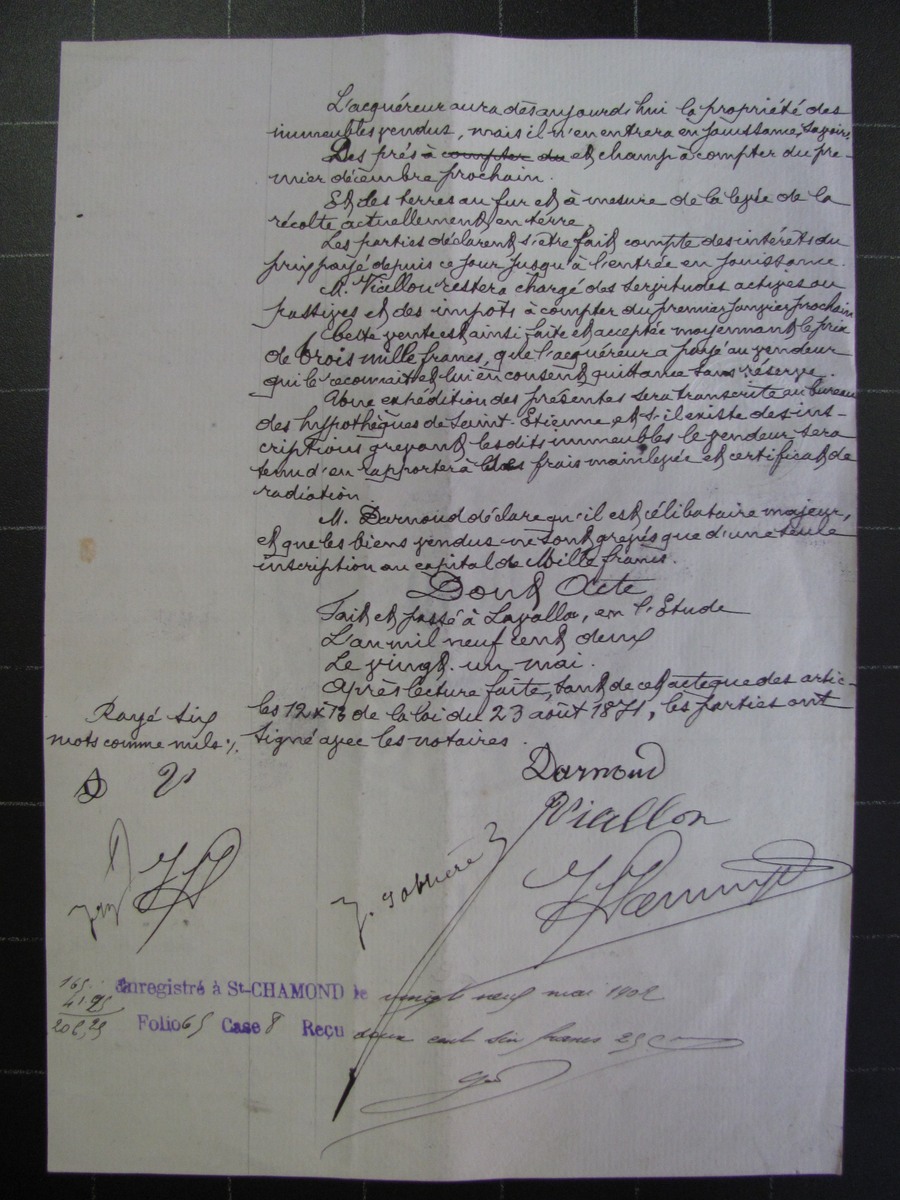 L'acquéreur aura dès aujourd'hui la propriété des
immeubles vendus, mais il n'en entrera en jouissance, savoir:
Des prés à compter du et champ à compter du pre-
mier décembre prochain.
Et des terres au fur et à mesure de la levée de la
récolte actuellement en terre.
Les parties déclarent s'être fait compte des intérêts du
prix payé depuis ce jour jusqu'à l'entrée en jouissance.
M. Viallon restera chargé des servitudes actives ou
passives et des impôts à compter du premier janvier prochain
Cette vente est ainsi faite et acceptée moyennant le prix
de trois mille francs, que l'acquéreur a payé au vendeur
qui le reconnaît et lui en consent quittance sans réserve.
Une expédition des présentes sera transcrite au bureau
des hypothèques de Saint-Etienne et s'il existe des ins-
criptions grevant lesdits immeubles le vendeur sera
tenu d'en rapporter à frais mainlevée et certificat de
radiation
M. Darnoud déclare qu'il est célibataire majeur,
et que les biens vendus ne sont grevés que d'une seule
inscription au capital de Mille francs.
Dont Acte
Fait et passé à Lavalla, en l'Etude
L'an mil neuf cent deux
Le vingt-un mai.
Après lecture faite, tant de cet acte que des artic-
les 12 & 13 de la loi du 23 août 1871, les parties ont
signé avec les notaires.
Rayé six
mots comme nuls ./.
Darnoud
Viallon
165.
41.25
206,25
Enregistré à St-CHAMOND le vingt neuf mai 1902
Folio 65 Case 8 Reçu deux cent six francs 25 c